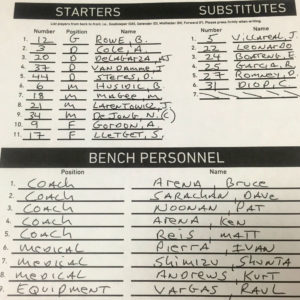 STARTERS
SUBSTITUTES
List players from back to front: i.e. Goalkeeper (GK), Defender (D), Midfielder (M), Forward (F). Please press firmly when writing.
Number Position Name Number Name
1. 12 G ROWE, B. 1. 5 VILLAREAL, J.
2. 3 D COLE, A. 2. 22 LEONARDO
3. 20 D DELAGARZA, AJ 3. 24 BOATENG, E
4. 37 D VAN DAMME, J. 4. 25 GARCIA, R
5. 44 D STERES, D. 5. 27 ROMNEY, D
6. 6 M HUSIDIC, B. 6. 31 DIOP, C.
7. 18 M MAGEE, M.
8. 21 M LARENTOWICZ, J.
9. 34 M DE JONG, N. (C)
10. 9 F GORDON, A.
11. 17 F LLETGET, S.
BENCH PERSONNEL
Position Name
1. COACH ARENA, BRUCE
2. COACH SARACHAN, DAVE
3. COACH NOONAN PAT
4. COACH ARENA, KEN
5. COACH REIS MATT
6. MEDICAL PIERRA, IVAN
7. MEDICAL SHIMIZU, SHUNTA
8. MEDICAL ANDREWS, KURT
9. EQUIPMENT VARGAS RAUL